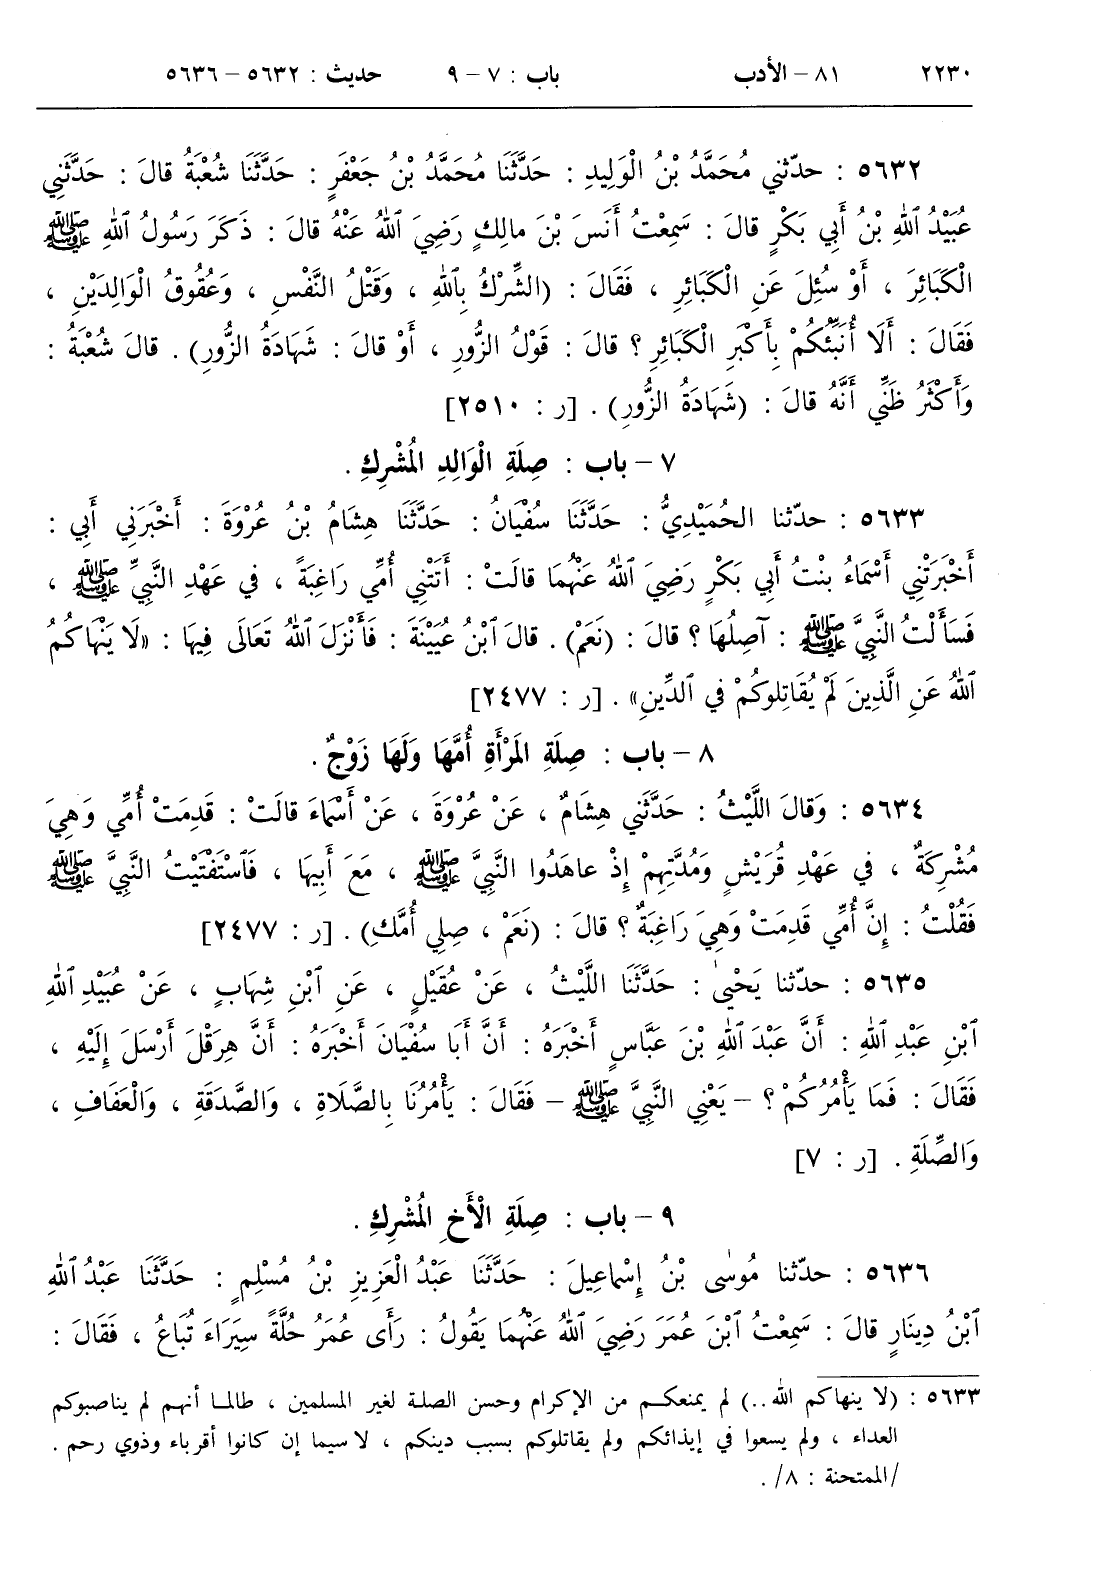 ٢٢٣٠ ٨١ – الأدب باب : ٧ – ٩ حديث : ٥٦٣٢ – ٥٦٣٦
٥٦٣٢ : حدّثني مُحَمَّدُ بْنُ الْوَلِيدِ : حَدَّثَنَا مُحَمَّدُ بْنُ جَعْفَرٍ : حَدَّثَنَا شُعْبَةُ قالَ : حَدَّثَنِي
عُبَيْدُ ٱللهِ بْنُ أَبِي بَكْرٍ قالَ : سَمِعْتُ أَنَسَ بْنَ مالِكٍ رَضِيَ ٱللهُ عَنْهُ قالَ : ذَكَرَ رَسُولُ ٱللهِ ﷺ
الْكَبَائِرَ ، أَوْ سُئِلَ عَنِ الْكَبَائِرِ ، فَقَالَ : (الشِّرْكُ بِٱللهِ ، وَقَتْلُ النَّفْسِ ، وَعُقُوقُ الْوَالِدَيْنِ ،
فَقَالَ : أَلَا أُنَبِّئُكُمْ بِأَكْبَرِ الْكَبَائِرِ ؟ قالَ : قَوْلُ الزُّورِ ، أَوْ قالَ : شَهَادَةُ الزُّورِ) . قالَ شُعْبَةُ :
وَأَكْثَرُ ظَنِّي أَنَّهُ قالَ : (شَهَادَةُ الزُّورِ) . [ر : ٢٥١٠]
٧ – باب : صِلَةِ الْوَالِدِ المُشْرِكِ .
٥٦٣٣ : حدّثنا الحُمَيْدِيُّ : حَدَّثَنَا سُفْيَانُ : حَدَّثَنَا هِشَامُ بْنُ عُرْوَةَ : أَخْبَرَنِي أَبِي :
أَخْبَرَتْنِي أَسْمَاءُ بِنْتُ أَبِي بَكْرٍ رَضِيَ ٱللهُ عَنْهُمَا قالَتْ : أَتَتْنِي أُمِّي رَاغِبَةً ، في عَهْدِ النَّبِيِّ ﷺ ،
فَسَأَلْتُ النَّبِيَّ ﷺ : آصِلُهَا ؟ قالَ : (نَعَمْ) . قالَ ٱبْنُ عُيَيْنَةَ : فَأَنْزَلَ ٱللهُ تَعَالَى فِيهَا : «لَا يَنْهَاكُمُ
ٱللهُ عَنِ الَّذِينَ لَمْ يُقَاتِلوكُمْ في ٱلدِّينِ» . [ر : ٢٤٧٧]
٨ – باب : صِلَةِ المَرْأَةِ أُمَّهَا وَلَهَا زَوْجٌ .
٥٦٣٤ : وَقالَ اللَّيْثُ : حَدَّثَنِي هِشَامٌ ، عَنْ عُرْوَةَ ، عَنْ أَسْمَاءَ قالَتْ : قَدِمَتْ أُمِّي وَهِيَ
مُشْرِكَةٌ ، في عَهْدِ قُرَيْشٍ وَمُدَّتِهِمْ إِذْ عاهَدُوا النَّبِيَّ ﷺ ، مَعَ أَبِيهَا ، فَٱسْتَفْتَيْتُ النَّبِيَّ ﷺ
فَقُلْتُ : إِنَّ أُمِّي قَدِمَتْ وَهِيَ رَاغِبَةٌ ؟ قالَ : (نَعَمْ ، صِلِي أُمَّكِ) . [ر : ٢٤٧٧]
٥٦٣٥ : حدّثنا يَحْيىٰ : حَدَّثَنَا اللَّيْثُ ، عَنْ عُقَيْلٍ ، عَنِ ٱبْنِ شِهَابٍ ، عَنْ عُبَيْدِ ٱللهِ
ٱبْنِ عَبْدِ ٱللهِ : أَنَّ عَبْدَ ٱللهِ بْنَ عَبَّاسٍ أَخْبَرَهُ : أَنَّ أَبَا سُفْيَانَ أَخْبَرَهُ : أَنَّ هِرَقْلَ أَرْسَلَ إِلَيْهِ ،
فَقَالَ : فَمَا يَأْمُرُكُمْ ؟ – يَعْنِي النَّبِيَّ ﷺ – فَقَالَ : يَأْمُرُنَا بِالصَّلَاةِ ، وَالصَّدَقَةِ ، وَالْعَفَافِ ،
وَالصِّلَةِ . [ر : ٧]
٩ – باب : صِلَةِ الْأَخِ المُشْرِكِ .
٥٦٣٦ : حدّثنا مُوسٰى بْنُ إِسْماعِيلَ : حَدَّثَنَا عَبْدُ الْعَزِيزِ بْنُ مُسْلِمٍ : حَدَّثَنَا عَبْدُ ٱللهِ
ٱبْنُ دِينَارٍ قالَ : سَمِعْتُ ٱبْنَ عُمَرَ رَضِيَ ٱللهُ عَنْهُمَا يَقُولُ : رَأَى عُمَرُ حُلَّةً سِيَرَاءَ تُبَاعُ ، فَقَالَ :
٥٦٣٣ : (لا ينهاكم الله..) لم يمنعكم من الإكرام وحسن الصلة لغير المسلمين ، طالما أنهم لم يناصبوكم
العداء ، ولم يسعوا في إيذائكم ولم يقاتلوكم بسبب دينكم ، لا سيما إن كانوا أقرباء وذوي رحم .
/الممتحنة : ٨/ .